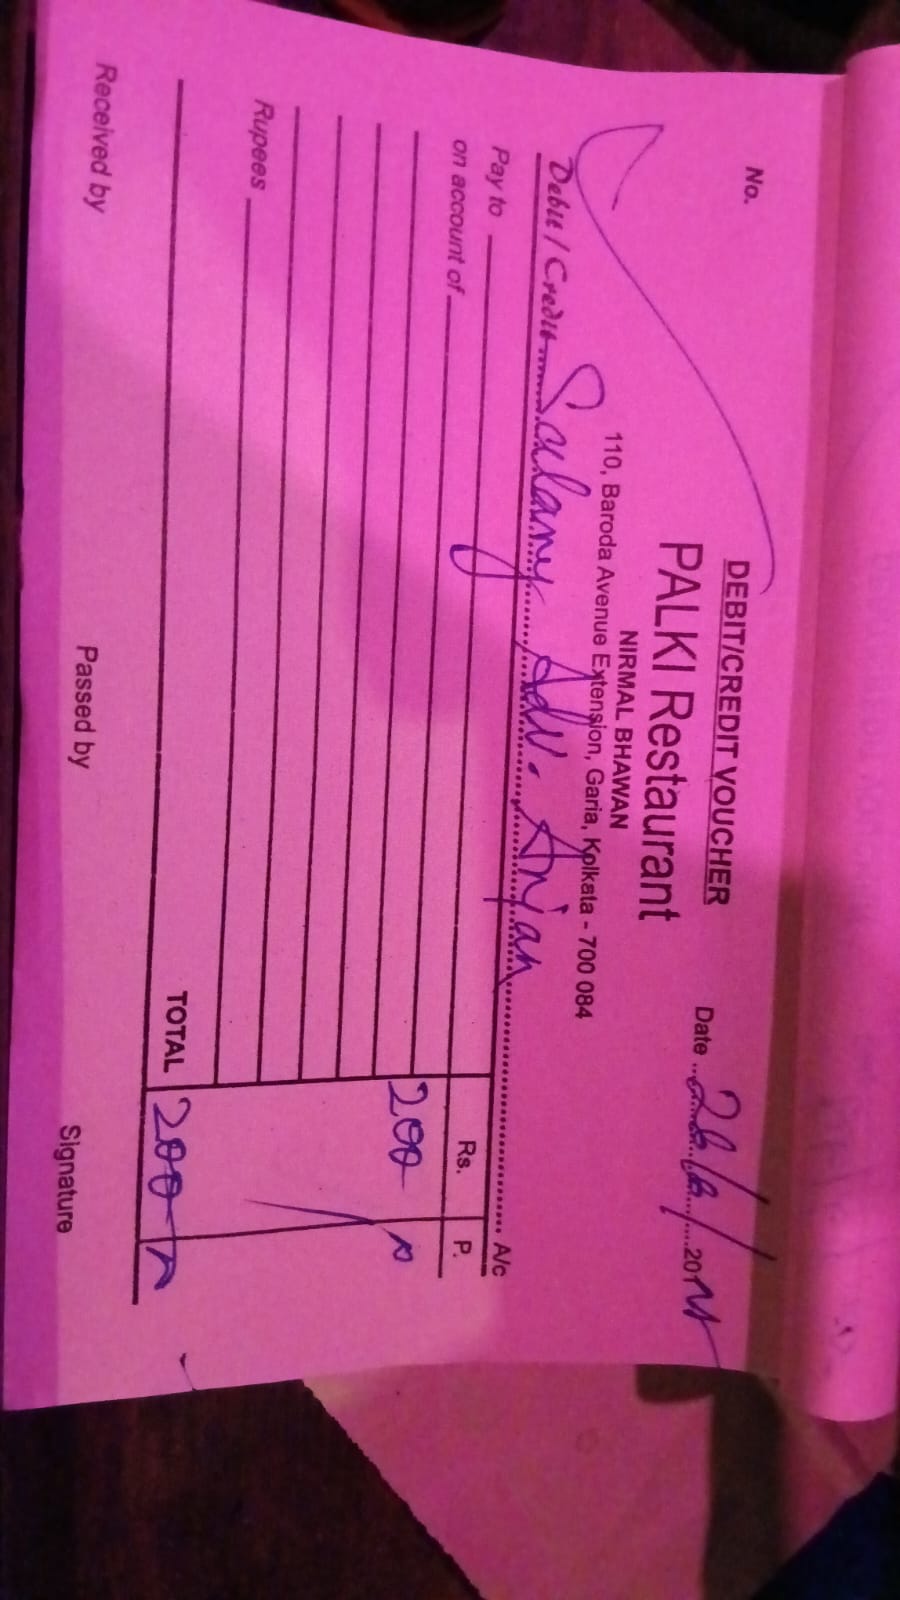 No.
DEBIT/CREDIT VOUCHER
PALKI Restaurant
Date
NIRMAL BHAWAN
110, Baroda Avenue Extension, Garia, Kolkata - 700 084
Debit / Credit Salary Adv. Anjan A/c
Pay to
on account of
Rs. P.
200
Rupees
TOTAL 200
Received by Passed by Signature